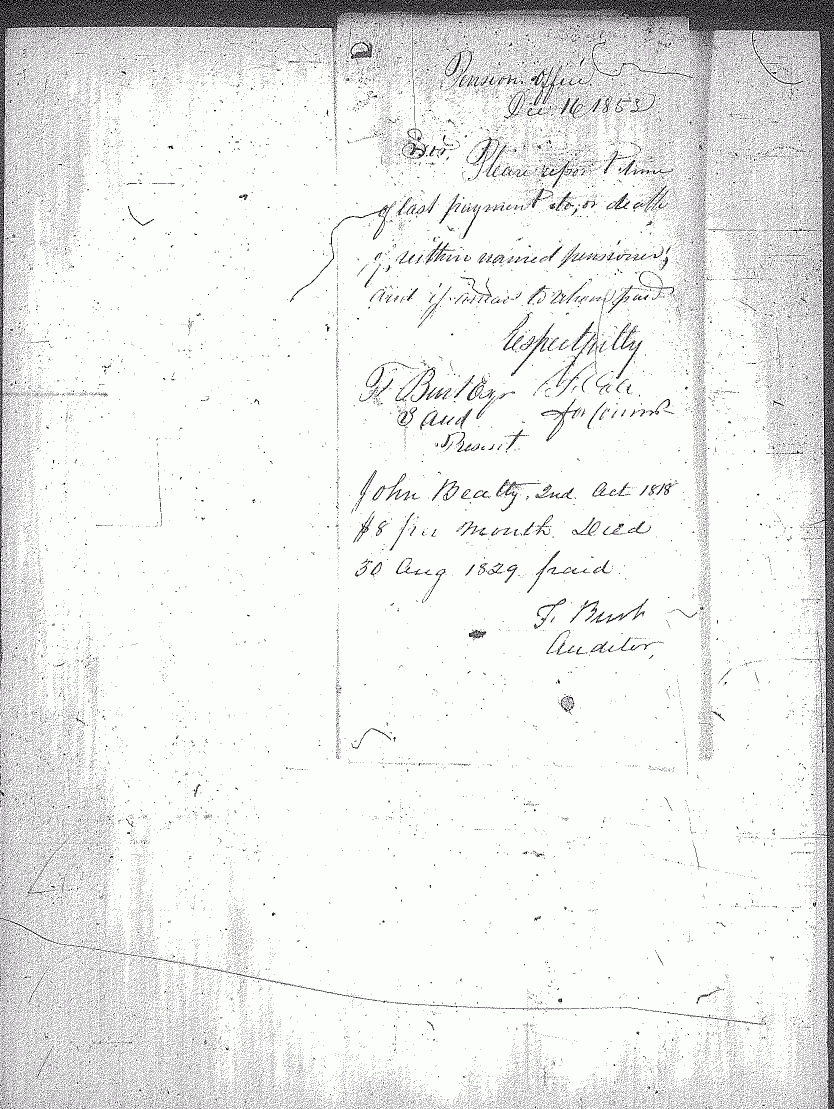 Pension Office
Dec 16 1853
Sir. Please report time
of last payment to, or death
of, within named pensioner;
and if to whom paid
Respectfully
F Burt Esqr
3 Aud for Comr
Present
John Beatty. 2nd. Act 1818
$8 per month Died
30 Aug 1829 paid
F. Burt
Auditor,